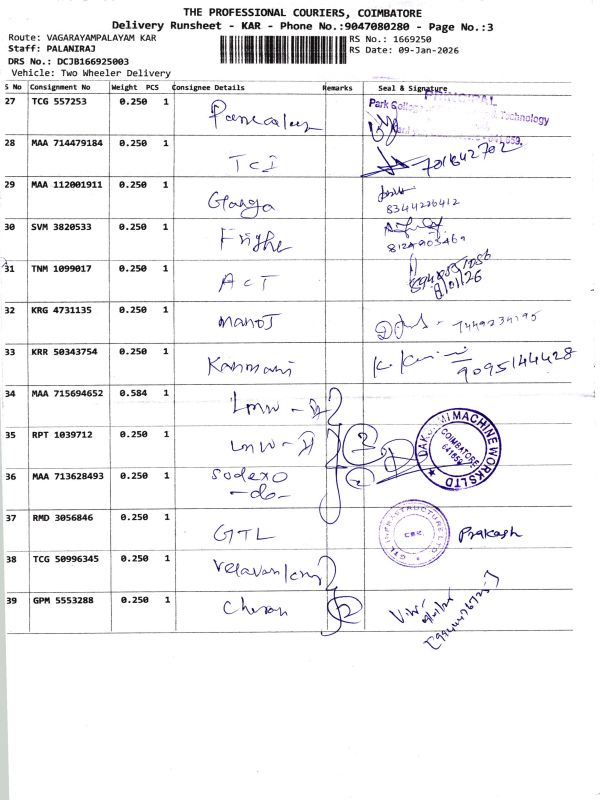 THE PROFESSIONAL COURIERS, COIMBATORE
Delivery Runsheet - KAR - Phone No.:9047080280 - Page No.:3
Route: VAGARAYAMPALAYAM KAR
RS No.: 1669250
Staff: PALANIRAJ
RS Date: 09-Jan-2026
DRS No.: DCJB166925003
Vehicle: Two Wheeler Delivery
S No Consignment No Weight PCS Consignee Details Remarks Seal & Signature
27 TCG 557253 0.250 1
PRINCIPAL
Park College of Technology
28 MAA 714479184 0.250 1 TCI
29 MAA 112001911 0.250 1 Ganga 8344226412
30 SVM 3820533 0.250 1
31 TNM 1099017 0.250 1 ACT
32 KRG 4731135 0.250 1 Manoj 7449234195
33 KRR 50343754 0.250 1 Kanmani 9095144428
34 MAA 715694652 0.584 1 LMW - II
35 RPT 1039712 0.250 1 LMW - II
MACHINE WORKS LTD
COIMBATORE
36 MAA 713628493 0.250 1 Sodexo
-do-
37 RMD 3056846 0.250 1 GTL
GTL INFRASTRUCTURE LTD
CBE.
Prakash
38 TCG 50996345 0.250 1
39 GPM 5553288 0.250 1 Cheran